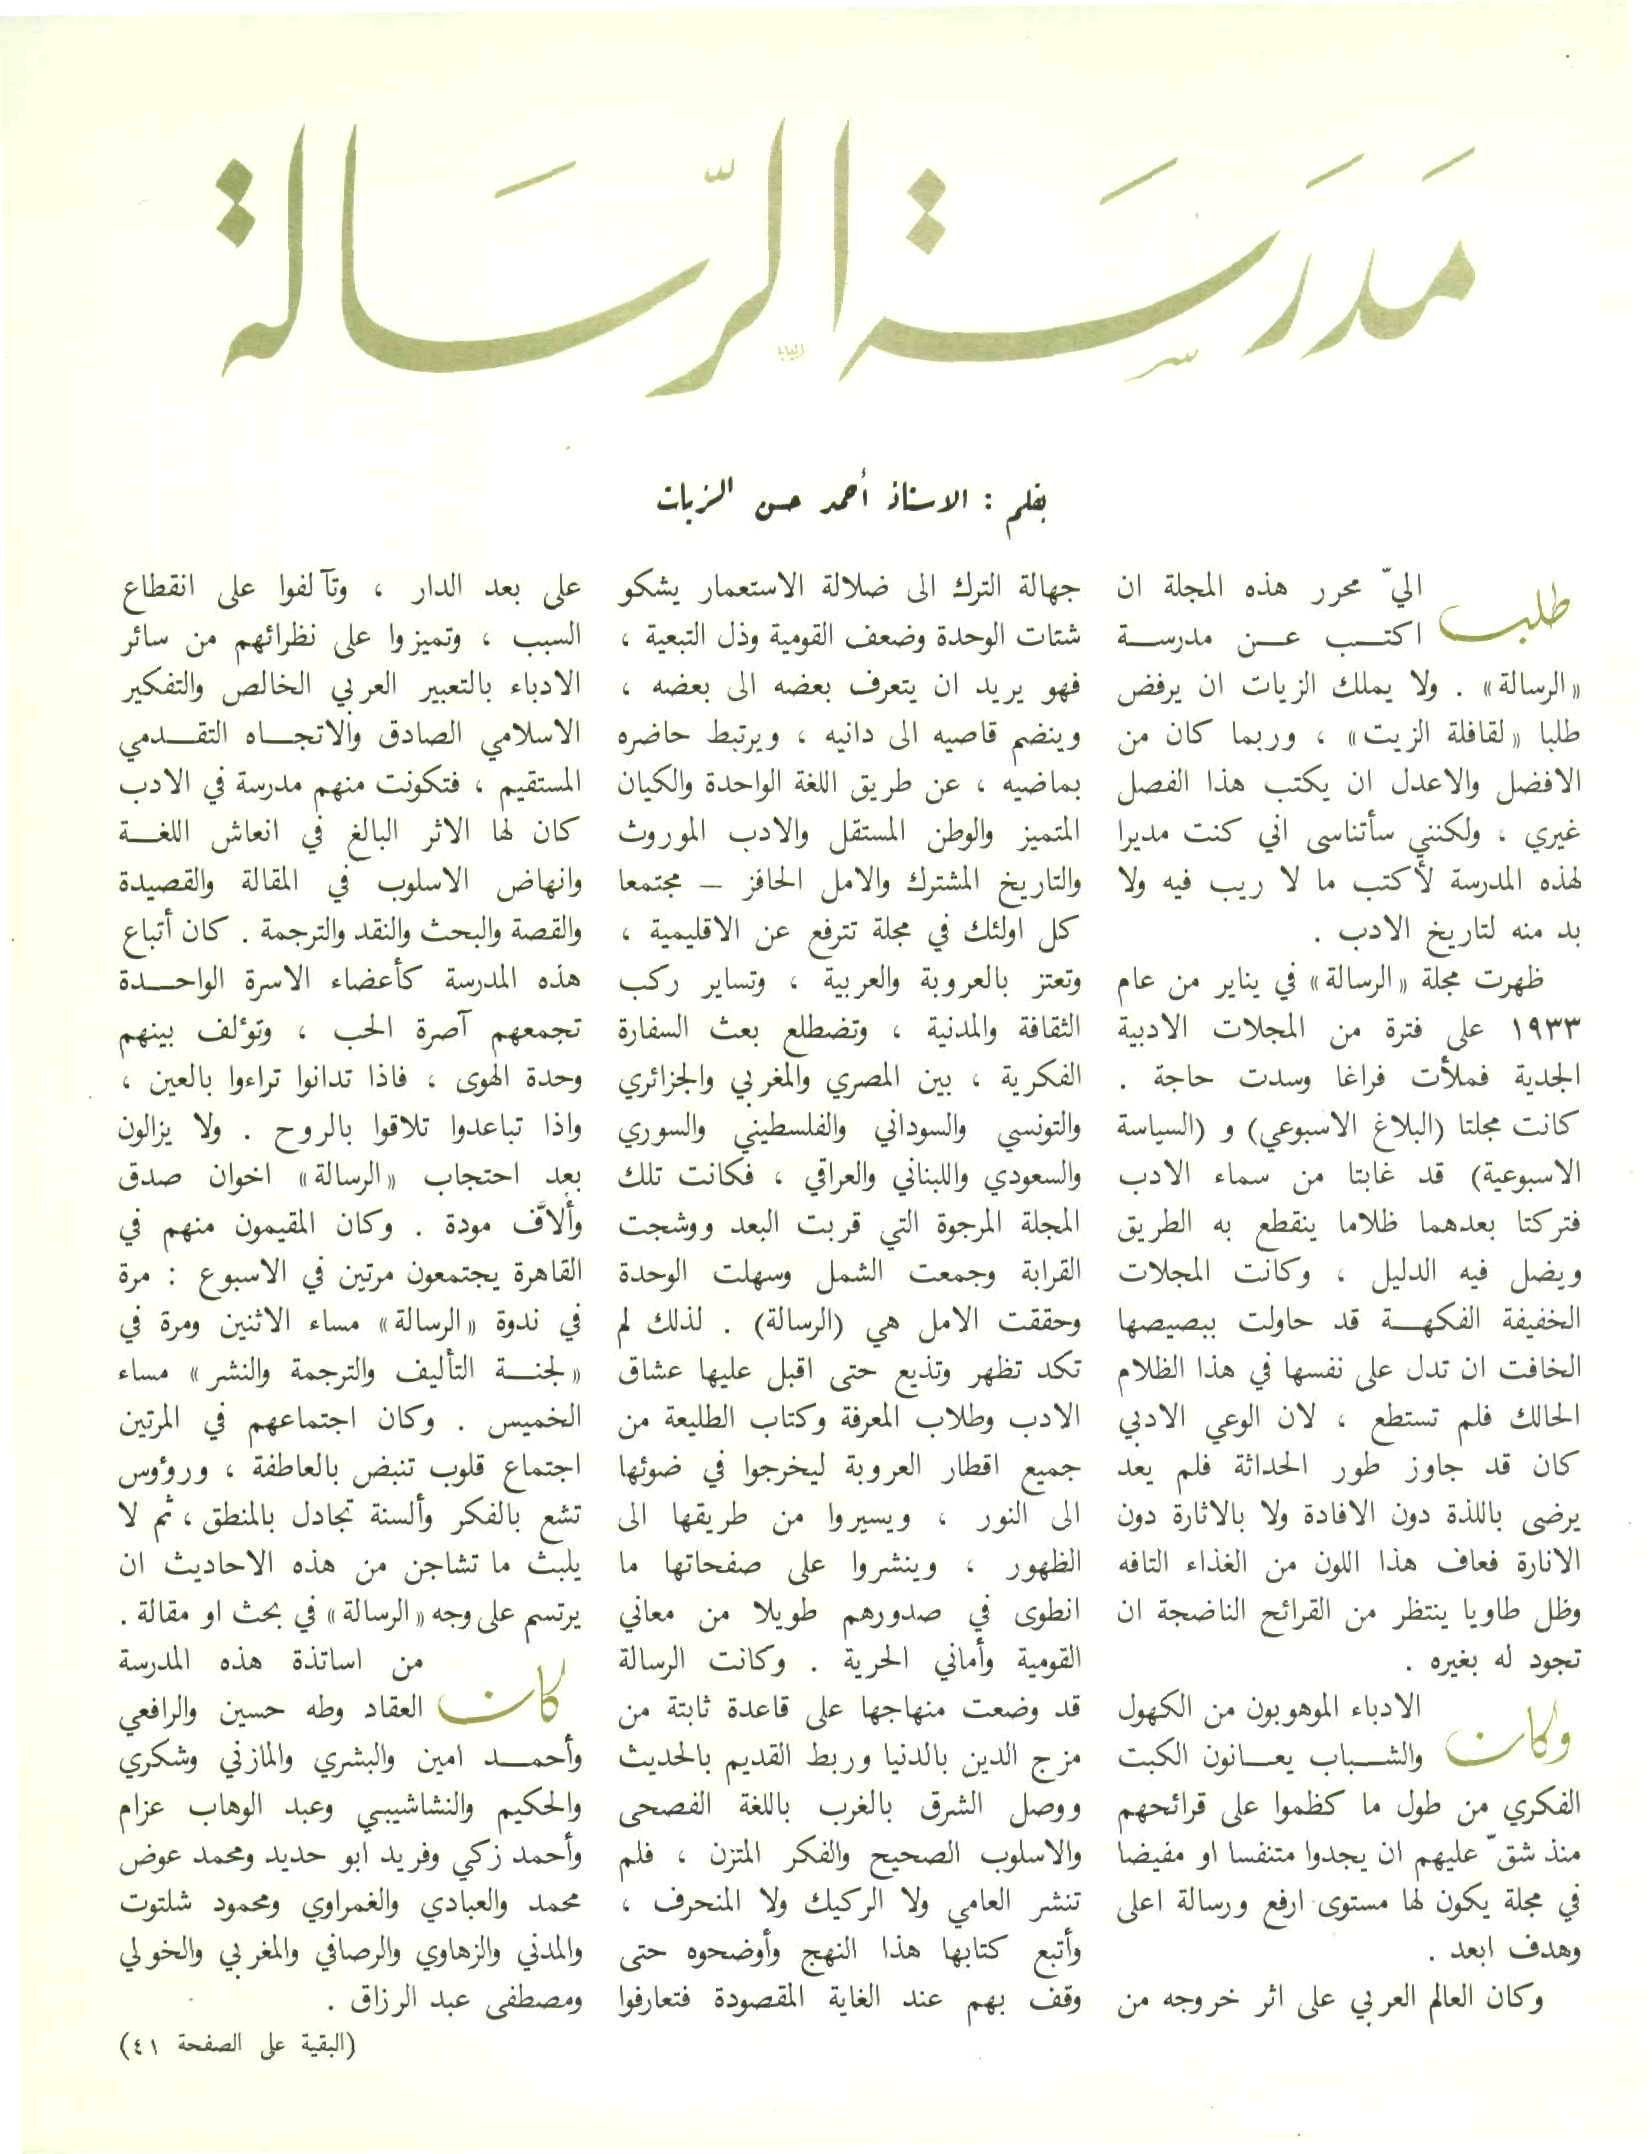 مَدرَسِة الرّسَالة
بقلم : الاستاذ أحمد حسن الزيات
طلب اليّ محرر هذه المجلة ان
اكتب عن مدرسة
«الرسالة» . ولا يملك الزيات ان يرفض
طلبا «لقافلة الزيت» ، وربما كان من
الافضل والاعدل ان يكتب هذا الفصل
غيري ، ولكنني سأتناسى اني كنت مديرا
لهذه المدرسة لأكتب ما لا ريب فيه ولا
بد منه لتاريخ الادب .
ظهرت مجلة «الرسالة» في يناير من عام
١٩٣٣ على فترة من المجلات الادبية
الجدية فملأت فراغا وسدت حاجة .
كانت مجلتا (البلاغ الاسبوعي) و (السياسة
الاسبوعية) قد غابتا من سماء الادب
فتركتا بعدهما ظلاما ينقطع به الطريق
ويضل فيه الدليل ، وكانت المجلات
الخفيفة الفكهة قد حاولت ببصيصها
الخافت ان تدل على نفسها في هذا الظلام
الحالك فلم تستطع ، لان الوعي الادبي
كان قد جاوز طور الحداثة فلم يعد
يرضى باللذة دون الافادة ولا بالاثارة دون
الانارة فعاف هذا اللون من الغذاء التافه
وظل طاويا ينتظر من القرائح الناضجة ان
تجود له بغيره .
وكان الادباء الموهوبون من الكهول
والشباب يعانون الكبت
الفكري من طول ما كظموا على قرائحهم
منذ شقّ عليهم ان يجدوا متنفسا او مفيضا
في مجلة يكون لها مستوى ارفع ورسالة اعلى
وهدف ابعد .
وكان العالم العربي على اثر خروجه من
جهالة الترك الى ضلالة الاستعمار يشكو
شتات الوحدة وضعف القومية وذل التبعية ،
فهو يريد ان يتعرف بعضه الى بعضه ،
وينضم قاصيه الى دانيه ، ويرتبط حاضره
بماضيه ، عن طريق اللغة الواحدة والكيان
المتميز والوطن المستقل والادب الموروث
والتاريخ المشترك والامل الحافز – مجتمعا
كل اولئك في مجلة تترفع عن الاقليمية ،
وتعتز بالعروبة والعربية ، وتساير ركب
الثقافة والمدنية ، وتضطلع بعث السفارة
الفكرية ، بين المصري والمغربي والجزائري
والتونسي والسوداني والفلسطيني والسوري
والسعودي واللبناني والعراقي ، فكانت تلك
المجلة المرجوة التي قربت البعد ووشجت
القرابة وجمعت الشمل وسهلت الوحدة
وحققت الامل هي (الرسالة) . لذلك لم
تكد تظهر وتذيع حتى اقبل عليها عشاق
الادب وطلاب المعرفة وكتاب الطليعة من
جميع اقطار العروبة ليخرجوا في ضوئها
الى النور ، ويسيروا من طريقها الى
الظهور ، وينشروا على صفحاتها ما
انطوى في صدورهم طويلا من معاني
القومية وأماني الحرية . وكانت الرسالة
قد وضعت منهاجها على قاعدة ثابتة من
مزج الدين بالدنيا وربط القديم بالحديث
ووصل الشرق بالغرب باللغة الفصحى
والاسلوب الصحيح والفكر المتزن ، فلم
تنشر العامي ولا الركيك ولا المنحرف ،
وأتبع كتابها هذا النهج وأوضحوه حتى
وقف بهم عند الغاية المقصودة فتعارفوا
على بعد الدار ، وتآلفوا على انقطاع
السبب ، وتميزوا على نظرائهم من سائر
الادباء بالتعبير العربي الخالص والتفكير
الاسلامي الصادق والاتجاه التقدمي
المستقيم ، فتكونت منهم مدرسة في الادب
كان لها الاثر البالغ في انعاش اللغة
وانهاض الاسلوب في المقالة والقصيدة
والقصة والبحث والنقد والترجمة . كان أتباع
هذه المدرسة كأعضاء الاسرة الواحدة
تجمعهم آصرة الحب ، وتؤلف بينهم
وحدة الهوى ، فاذا تدانوا تراءوا بالعين ،
واذا تباعدوا تلاقوا بالروح . ولا يزالون
بعد احتجاب «الرسالة» اخوان صدق
وألاَّف مودة . وكان المقيمون منهم في
القاهرة يجتمعون مرتين في الاسبوع : مرة
في ندوة «الرسالة» مساء الاثنين ومرة في
«لجنة التأليف والترجمة والنشر» مساء
الخميس . وكان اجتماعهم في المرتين
اجتماع قلوب تنبض بالعاطفة ، ورؤوس
تشع بالفكر وألسنة تجادل بالمنطق ، ثم لا
يلبث ما تشاجن من هذه الاحاديث ان
يرتسم على وجه «الرسالة» في بحث او مقالة .
كان من اساتذة هذه المدرسة
العقاد وطه حسين والرافعي
وأحمد امين والبشري والمازني وشكري
والحكيم والنشاشيبي وعبد الوهاب عزام
وأحمد زكي وفريد ابو حديد ومحمد عوض
محمد والعبادي والغمراوي ومحمود شلتوت
والمدني والزهاوي والرصافي والمغربي والخولي
ومصطفى عبد الرزاق .
(البقية على الصفحة ٤١)